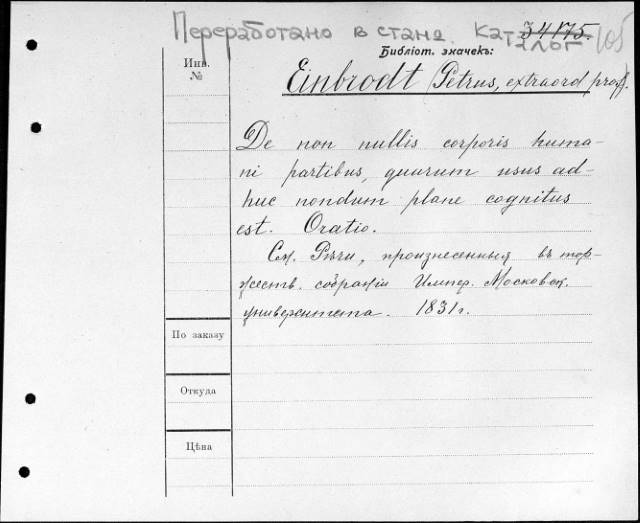 Переработано в станд. Каталог 105
34175.
Библіот. значекъ:
Инв.
№
Einbrodt (Petrus, extraord prof).
De non nullis corporis huma-
ni partibus, quarum usus ad-
huc nondum plane cognitus
est. Oratio.
См. Рѣчи, произнесенныя въ тор-
жеств. собраніи Импер. Московск.
университета. 1831г.
По заказу
Откуда
Цѣна